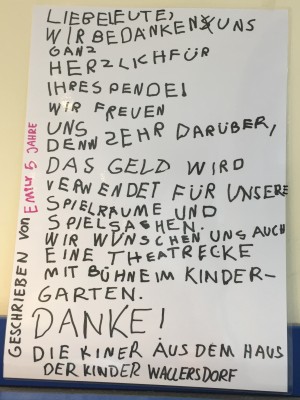 LIEBELEUTE,
WIR BEDANKEN UNS
GANZ
HERZLICHFÜR
IHRESPENDE!
WIR FREUEN
UNS
DENN ZEHR DARÜBER,
DAS GELD WIRD
VERWENDET FÜR UNSERE
SPIELRÄUME UND
SPIELSACHEN.
WIR WÜNSCHEN UNS AUCH
EINE THEATRECKE
MIT BÜHNEIM KINDER-
GARTEN.
DANKE!
DIE KINER AUS DEM HAUS
DER KINDER WALLERSDORF
GESCHRIEBEN VON EMILY 5 JAHRE